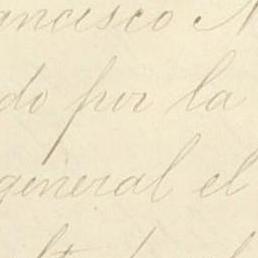 ancisco
do por la
general el